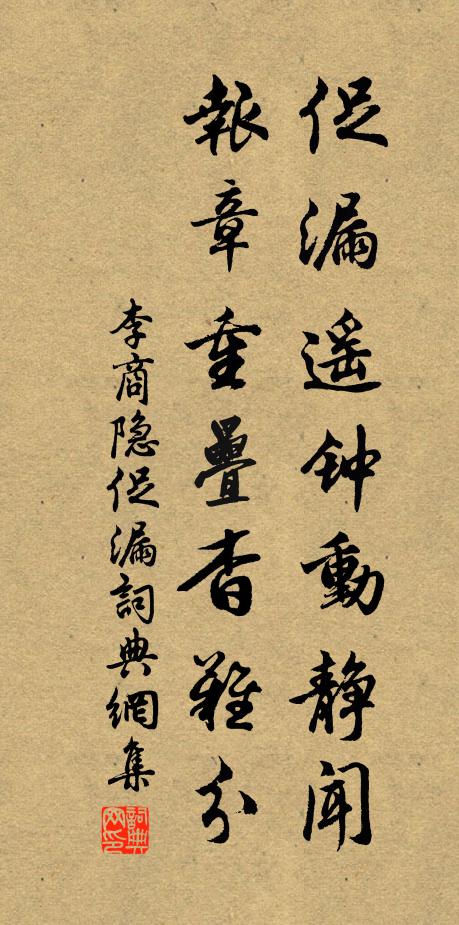 促漏遥钟動静闻
報章重疊杳難分
李商隐促漏詞典網集
詞典
网印